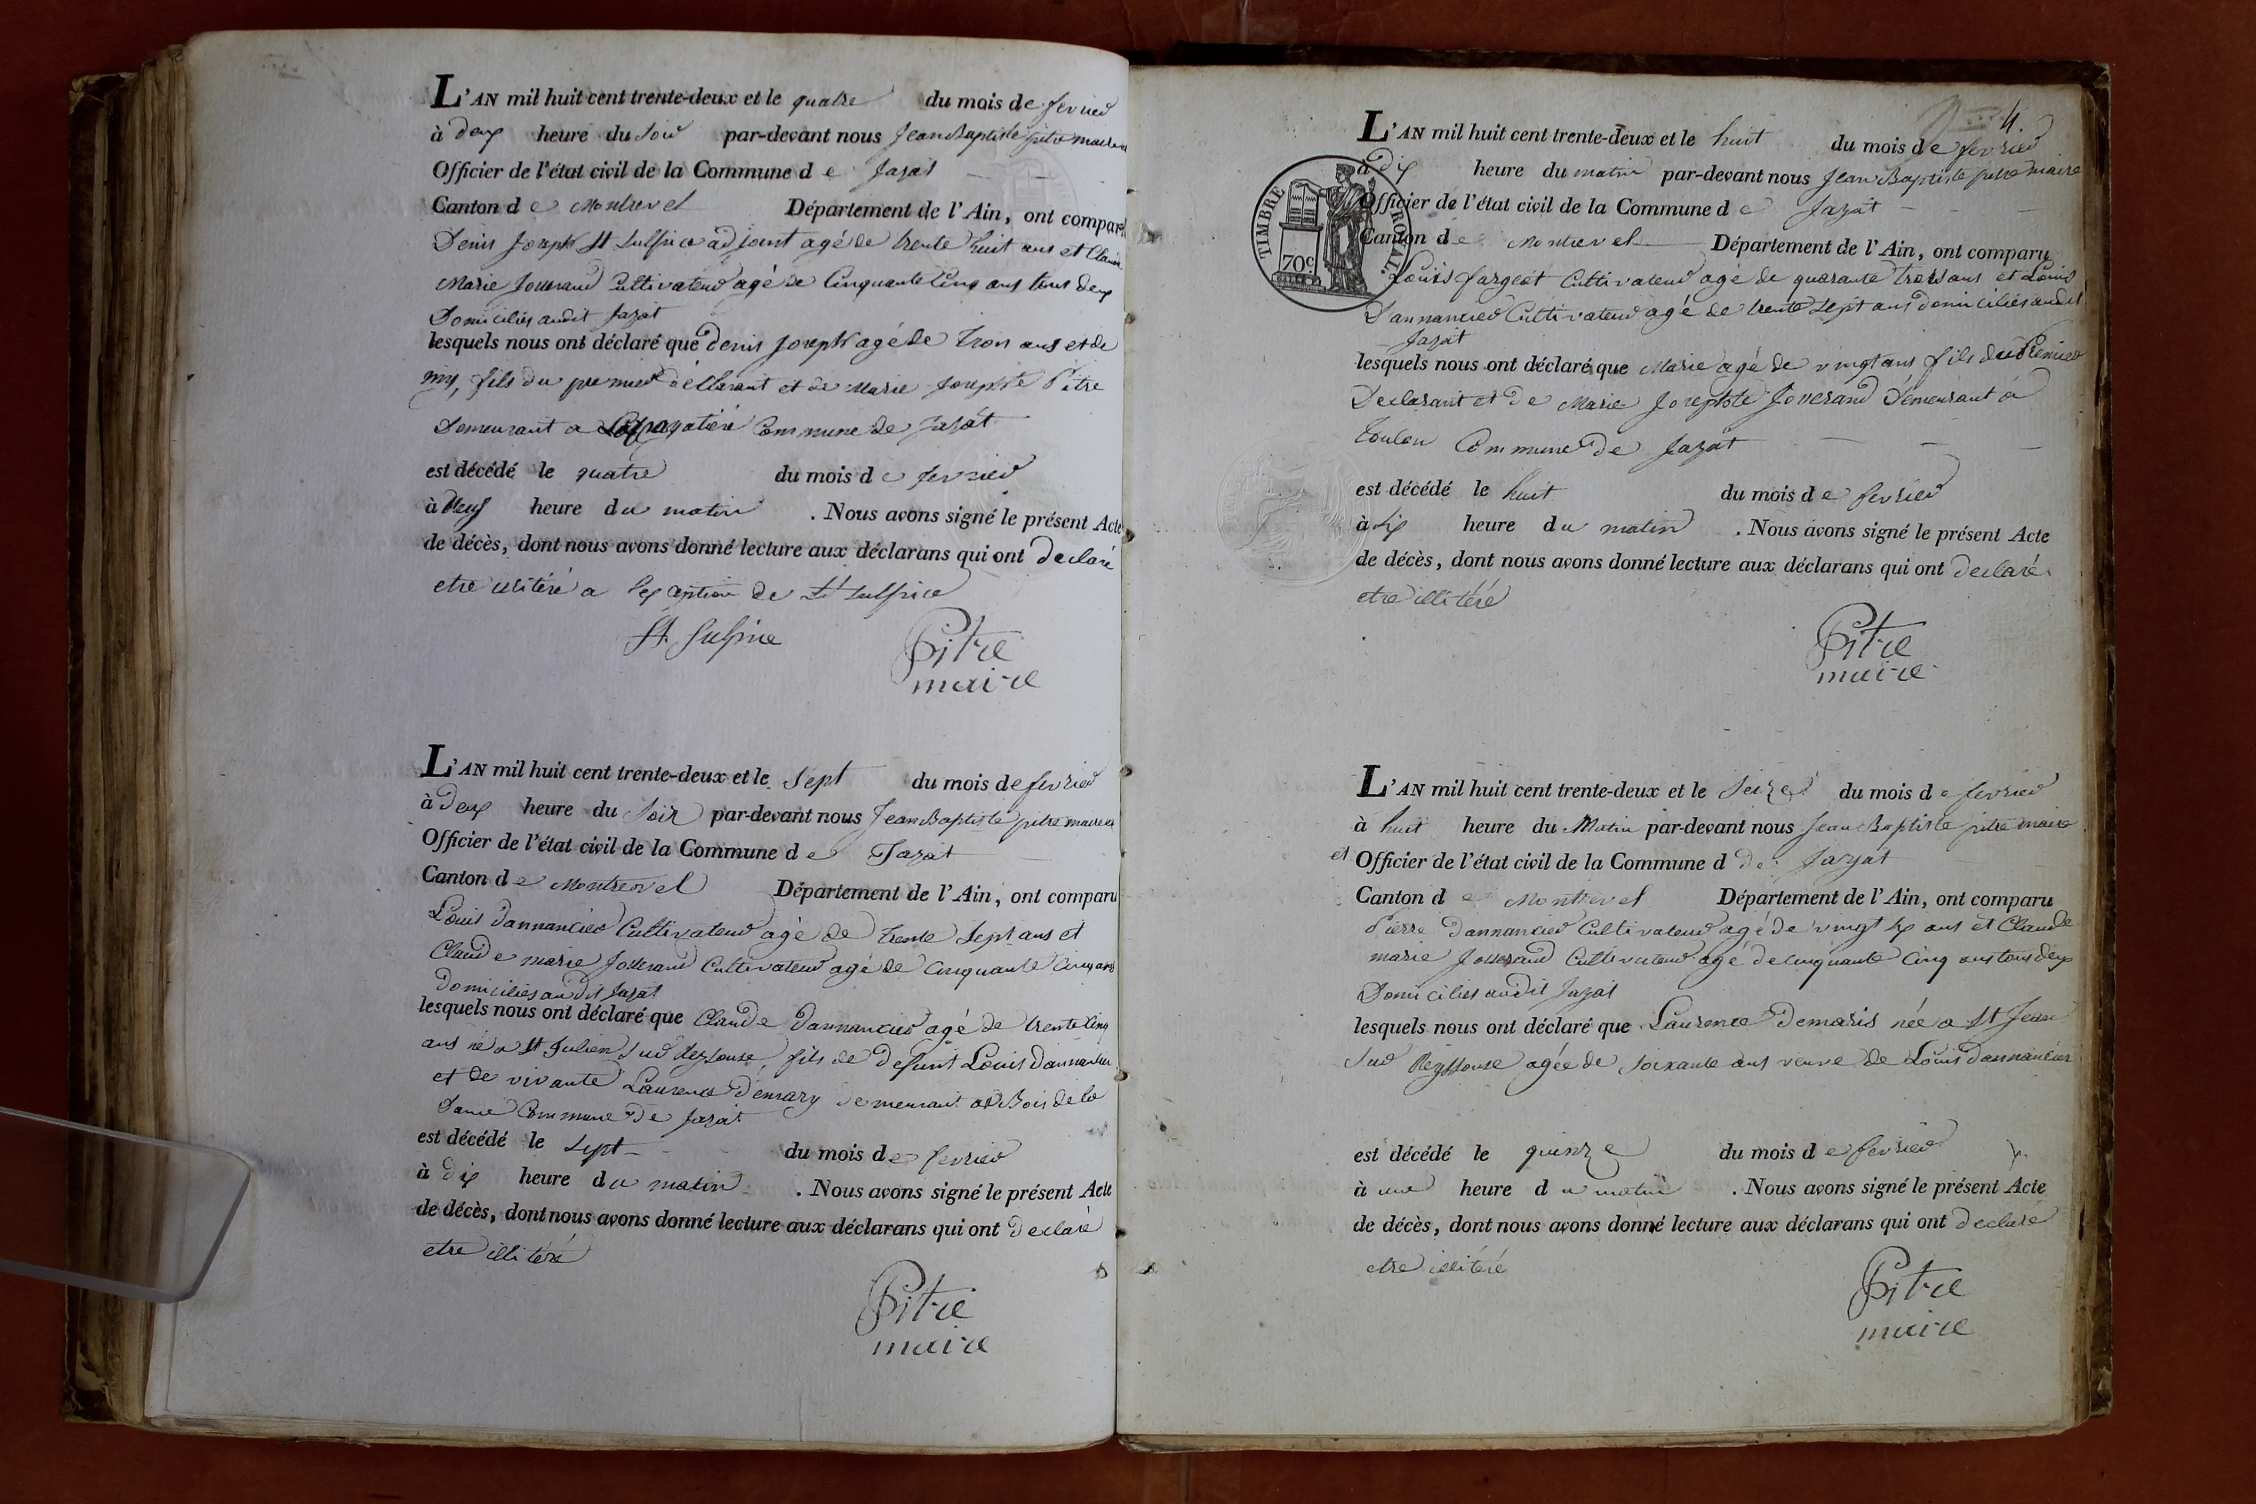 L'AN mil huit cent trente-deux et le quatre du mois de fevrier
à deux heure du soir par-devant nous Jean Baptiste pitre maire
Officier de l'état civil de la Commune de Jayat
Canton de Montrevel Département de l'Ain, ont comparu
Denis Joseph St Sulpice adjoint agé de trente huit ans et Claude
Marie Josserand Cultivateur agé de Cinquante Cinq ans tous deux
Domiciliés audit Jayat
lesquels nous ont déclaré que Denis Joseph agé de trois ans et de
my, fils du premier déclarant et de Marie Josephte Pitre
Demeurant a Commune de Jayat
est décédé le quatre du mois de fevrier
à neuf heure du matin . Nous avons signé le présent Acte
de décès, dont nous avons donné lecture aux déclarans qui ont declaré
etre illitéré a lexception de St Sulpice
St. Sulpice Pitre
maire
L'AN mil huit cent trente-deux et le Sept du mois de fevrier
à deux heure du Soir par-devant nous Jean Baptiste pitre maire et
Officier de l'état civil de la Commune de Jayat
Canton de Montrevel Département de l'Ain, ont comparu
Louis Dannancier Cultivateur agé de trente Sept ans et
Claude marie Josserand Cultivateur agé de Cinquante Cinq ans
Domiciliés audit Jayat
lesquels nous ont déclaré que Claude Dannancier agé de trente Cinq
ans né a St Julien Sur Reyssouse, fils de defunt Louis Dannancier
et de vivante Laurence Demary demeurant au Bois de la
Dame Commune de Jayat
est décédé le Sept du mois de fevrier
à dix heure du matin . Nous avons signé le présent Acte
de décès, dont nous avons donné lecture aux déclarans qui ont declaré
etre illitéré
Pitre
maire
4.
L'AN mil huit cent trente-deux et le huit du mois de fevrier
à dix heure du matin par-devant nous Jean Baptiste pitre maire
Officier de l'état civil de la Commune de Jayat
Canton de Montrevel Département de l'Ain, ont comparu
TIMBRE ROYAL.
70c
Louis fargeot Cultivateur agé de quarante trois ans et Louis
Dannancier Cultivateur agé de trente Sept ans domiciliés audit
Jayat
lesquels nous ont déclaré que Marie agé de vingt ans fils du Premier
Declarant et de Marie Josephte Josserand Demeurant a
Toulou Commune de Jayat
est décédé le huit du mois de fevrier
à six heure du matin . Nous avons signé le présent Acte
de décès, dont nous avons donné lecture aux déclarans qui ont declaré
etre illitéré
Pitre
maire
L'AN mil huit cent trente-deux et le Seize du mois de fevrier
à huit heure du Matin par-devant nous Jean Baptiste pitre maire
et Officier de l'état civil de la Commune d de Jayat
Canton de Montrevel Département de l'Ain, ont comparu
Pierre Dannancier Cultivateur agé de vingt six ans et Claude
marie Josserand Cultivateur agé de cinquante Cinq ans tous deux
Domiciliés audit Jayat
lesquels nous ont déclaré que Laurence Demaris née a St Jean
Sur Reyssouse agée de Soixante ans veuve de Louis Dannancier
est décédé le quinze du mois de fevrier
à une heure du matin . Nous avons signé le présent Acte
de décès, dont nous avons donné lecture aux déclarans qui ont declaré
etre illitéré
Pitre
maire